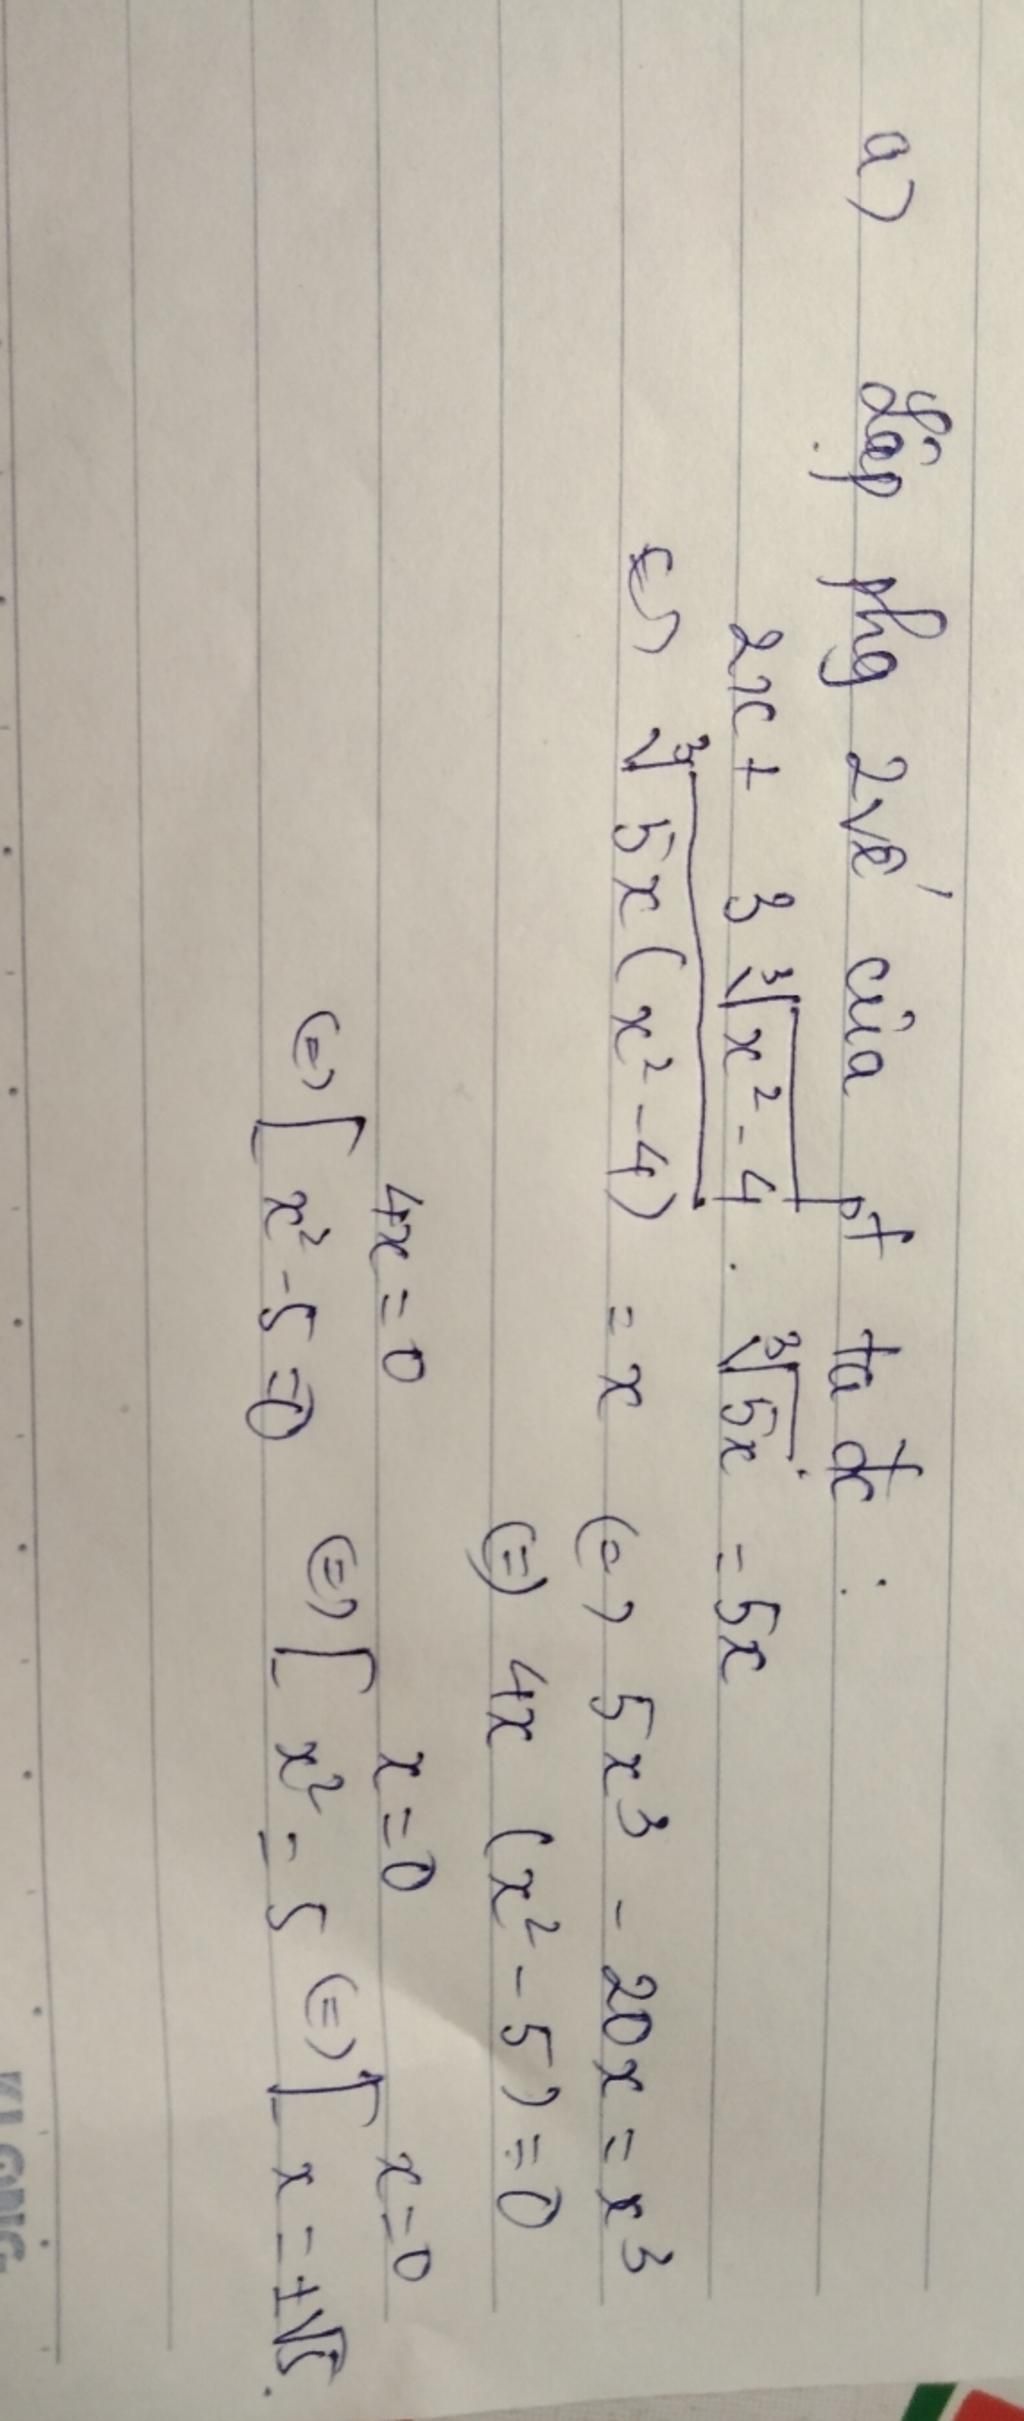 a) Lập phg 2 vế của pt ta đc :
2x + 3 ∛x² - 4 . ∛5x = 5x
(=) ∛5x(x² - 4) = x (=) 5x³ - 20x = x³
(=) 4x (x² - 5) = 0
(=) [ 4x = 0 x² - 5 = 0 (=) [ x = 0 x² = 5 (=) [ x = 0 x = ±√5.